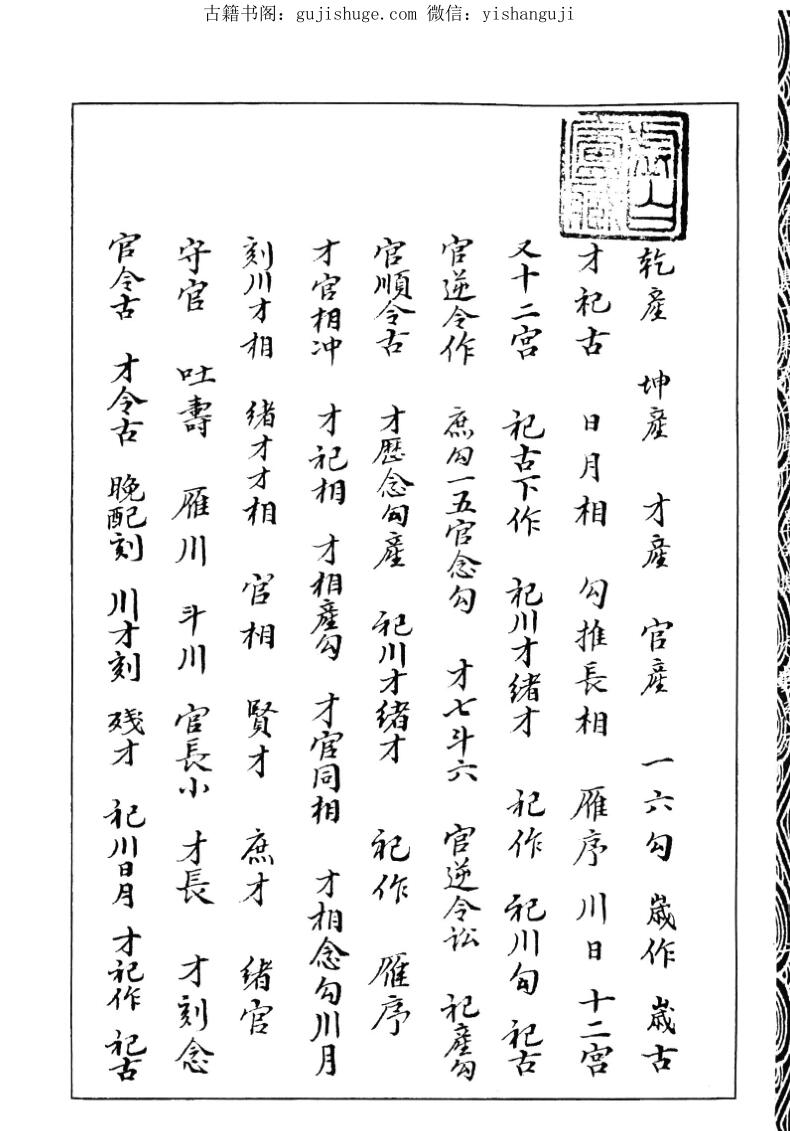 古籍书阁：gujishuge.com 微信：yishanguji
乾産　坤産　才産　官産　一六勾　歳作　歳古
才祀古　日月相　勾推長相　雁序　川日　十二宮
又十二宮　祀古下作　祀川才緒才　祀作　祀川勾　祀古
官逆令作　庶勾一五官念勾　才七斗六　官逆令訟　祀産勾
官順令古　才歴念勾産　祀川才緒才　祀作　雁序
才官相冲　才祀相　才相産勾　才官同相　才相念勾川月
刻川才相　緒才才相　官相　賢才　庶才　緒官
守官　吐壽　雁川　斗川　官長小　才長　才刻念
官令古　才令古　晚配刻　川才刻　残才　祀川日月　才祀作　祀古